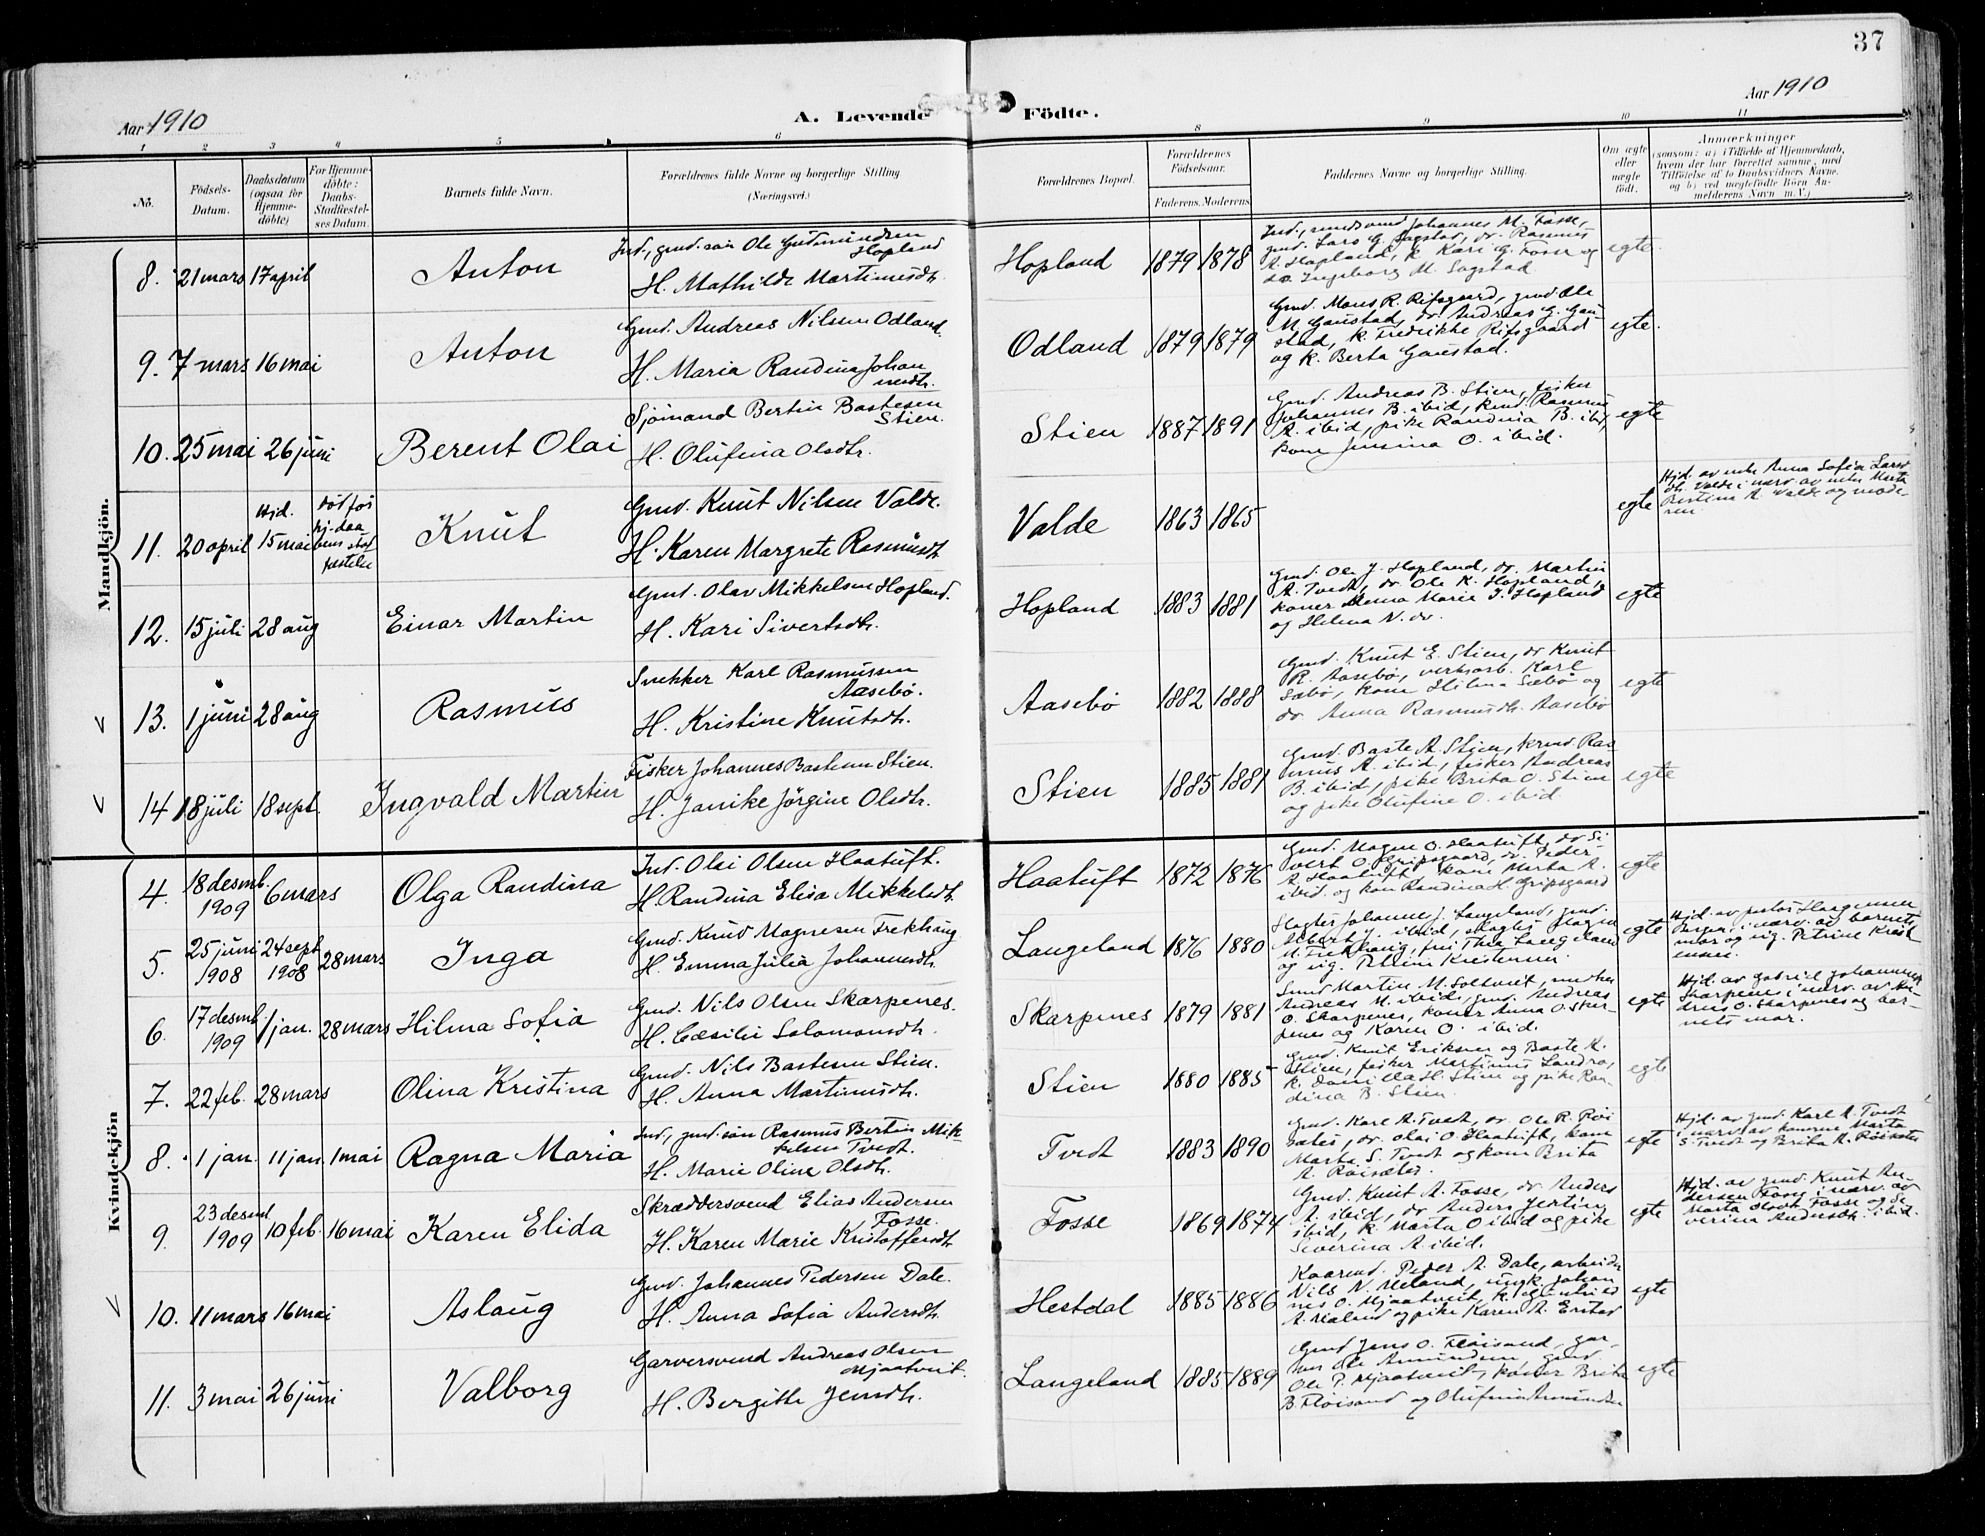 37
Aar 1910
A. Levende Födte.
Aar 1910
1 2 3 4 5 6 8 9 10 11
No.
Födsels-Datum.
Daabsdatum (ogsaa for Hjemme-döbte)
For Hjemme-döbte: Daabs-Stadfæstel-ses Datum.
Barnets fulde Navn.
Forældrenes fulde Navne og borgerlige Stilling
(Næringsvei.)
Forældrenes Bopæl.
Forældrenes Födselsaar.
Faderens. Moderens.
Faddernes Navne og borgerlige Stilling.
Om ægte eller uægte födt.
Anmærkninger
(saasom: a) i Tilfælde af Hjemmedaab,
hvem der har forrettet samme, med
Tilföielse af to Daabsvidners Navne.
og b) ved uægtefödte Börn An-
melderens Navn m.V.)
Mandkjön.
8. 21 mars 17 april Anton
Ind., gmd. søn Ole Gudmundsen
Hopland
H. Mathilde Martinusdtr.
Hopland 1879 1878
Ind., Johannes M. Fosse,
gmd. Lars G. Sagstad, dr. Rasmus
A. Hopland, k. Kari G. Fosse og
Ingeborg M. Sagstad
egte.
9. 7 mars 16 mai Anton
Gmd. Andreas Nilsen Odland.
H. Maria Randina Johan
nesdtr.
Odland 1879 1879
Gmd. Mons R. Rifsgaard, gmd. Ole
M. Gaustad, dr. Andreas G. Gau-
stad, k. Fredrikke Rifsgaard
og k. Berta Gaustad.
egte.
10. 25 mai 26 juni Berent Olai
Sjömand Bertin Bastesen
Stien.
H. Olufina Olsdtr.
Stien 1887 1891
Gmd. Andreas B. Stien, fisker
Johannes B. ibid, Rasmus
A. ibid, pike Randina B. ibid,
kone Jensina O. ibid.
egte
11. 20 april Hjd. 15 mai død før hj-daabens stadfæstelse Knut
Gmd. Knut Nilsen Valde.
H. Karen Margrete Rasmusdtr.
Valde 1863 1865
egte
Hjd. av enke Anna Sofia Lars
dtr. Valde i nærv. av enke Marta
Bertina A. Valde og mode-
ren.
12. 15 juli 28 aug Einar Martin
Gmd. Olav Mikkelsen Hopland.
H. Kari Sivertsdtr.
Hopland 1883 1881
Gmd. Ole J. Hopland, dr. Martin
A. Tvedt, dr. Ole K. Hopland,
koner Anna Marie J. Hopland
og Helena N. do.
egte
13. 1 juni 28 aug Rasmus
Snekker Karl Rasmussen
Aasebø.
H. Kristine Knutsdtr.
Aasebø 1882 1888
Gmd. Knut E. Stien, dr. Knut
R. Aasebø, verksarb. Karl
Sæbø, kone Hilma Sæbø og
dr. Anna Rasmusdtr. Aasebø
egte
14 18 juli 18 sept. Ingvald Martin
Fisker Johannes Bastesen Stien.
H. Janike Jörgine Olsdtr.
Stien 1885 1881
Gmd. Baste A. Stien, Ras-
mus A. ibid, fisker Andreas
B. ibid, pike Brita O. Stien
og pike Olufine O. ibid.
egte
Kvindekjön
4. 18 desmb. 1909 6 mars Olga Randina
Ind. Olai Olsen Haatuft.
H. Randina Elisa Mikkelsdtr.
Haatuft 1872 1876
Gmd. Mogne O. Haatuft, dr. Si-
vert O. Gripsgaard, dr. Peder
A. Haatuft, kone Marta A.
ibid. og kone Randina H. Gripsgaard
egte
5. 25 juni 1908 24 sept 1908 28 mars Inga
Gmd. Knud Magnesen Frekhaug
H. Emma Julia Johannesdtr.
Langeland 1876 1880
Slagter Johannes J. Langeland, gmd.
Albert J. ibid, slagter Magne
M. Frekhaug, frk. Thea Langeland
og sig. Petrine Kristensen.
egte
Hjd. av pastor Hargensen
Bergen, i nærv. av barnets
mor og sig. Petrine Krist
ensen.
6. 17 desmb 1909 1 jan. 28 mars Hilma Sofia
Gmd. Nils Olsen Skarpenes.
H. Cæsilie Salomonsdtr.
Skarpenes 1879 1881
Martin M. Soltveit,
Andreas M. ibid, gmd. Andreas
O. Skarpenes, koner Anna O. Skar-
penes og Karen O. ibid.
egte
Hjd. av Gabriel Johannes
Skarpenes i nærv. av An-
dreas O. Skarpenes og bar-
nets mor.
7. 22 feb. 28 mars Olina Kristina
Gmd. Nils Bastesen Stien.
H. Anna Martinusdtr.
Stien 1880 1885
Gmd. Knut Eriksen og Baste A.
Stien, fisker Martinus Landro,
k. Danielle H. Stien og pike Ran-
dina B. Stien.
egte
8. 1 jan. 11 jan. 1 mai Ragna Maria
Ind., gmd. søn Rasmus Bertin Mik-
kelsen Tvedt.
H. Marie Oline Olsdtr.
Tvedt 1883 1890
Gmd. Karl A. Tvedt, dr. Ole R. Röi-
sæter, dr. Olai O. Haatuft, kone
Marta S. Tvedt og kone Brita
A. Röisæter.
egte
Hjd. av gmd. Karl A. Tvedt
i nærv. av konerne Marta
S. Tvedt og Brita A. Röisæter
9. 23 desmb 1909 10 feb. 16 mai Karen Elida
Skræddersvend Elias Andersen
Fosse.
H. Karen Marie Kristoffersdtr.
Fosse 1869 1874
Gmd. Knut A. Fosse, dr. Anders
A. ibid, dr. Anders Jertin
ibid, k. Marta O ibid og pike
Siverina A. ibid.
egte
Hjd. av gmd. Knut An-
dersen Fosse i nærv. av
Marta Fosse og Se-
verina Andersdtr. ibid.
10. 11 mars 16 mai Aslaug
Gmd. Johannes Pedersen Dale.
H. Anna Sofia Andersdtr.
Hestdal 1885 1886
Kaarmd. Peder A. Dale, arbeider
Nils N. Meland, ungk. Johan
nes O. Mjaatveit, k.
A. Meland og pike Karen A. Eristad
egte
11. 3 mai 26 juni Valborg
Garversvend Andreas Olsen
Mjaatveit.
H. Bergithe Jensdtr.
Langeland 1885 1889
Gmd Jens O. Fløisand, gar-
ver Ole Amundsen, gmd
Ole P. Mjaatveit, koner Brita
B. Fløisand og Olufina Amundsen
egte